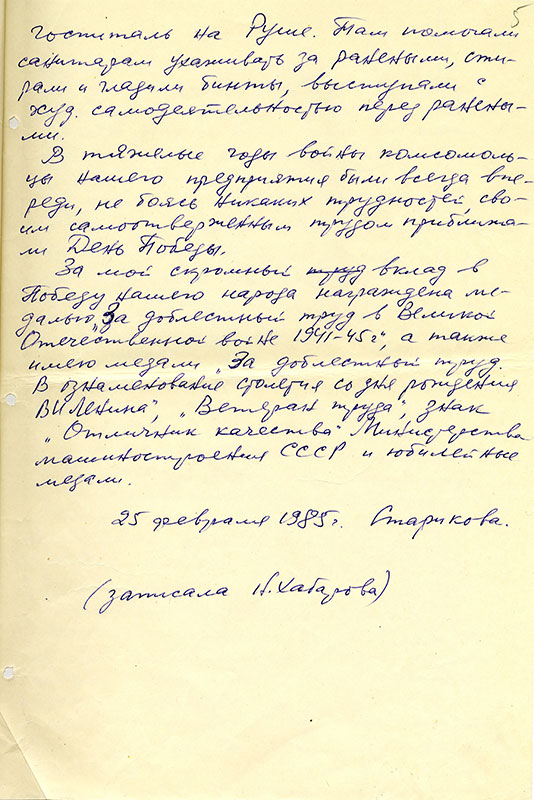 5
госпиталь на Руше. Там помогали
санитарам ухаживать за ранеными, сти-
рали и гладили бинты, выступали с
худ. самодеятельностью перед ранены-
ми.
В тяжелые годы войны комсомоль-
цы нашего предприятия были всегда впе-
реди, не боясь никаких трудностей, сво-
им самоотверженным трудом приближа-
ли День Победы.
За мой скромный труд вклад в
Победу нашего народа награждена ме-
далью „За доблестный труд в Великой
Отечественной войне 1941-45г.", а также
имею медали „За доблестный труд.
В ознаменование столетия со дня рождения
ВИ Ленина", „Ветеран труда", знак
„Отличник качества" Министерства
машиностроения СССР и юбилейные
медали.
25 февраля 1985г. Старикова.
(записала Н. Хабарова)